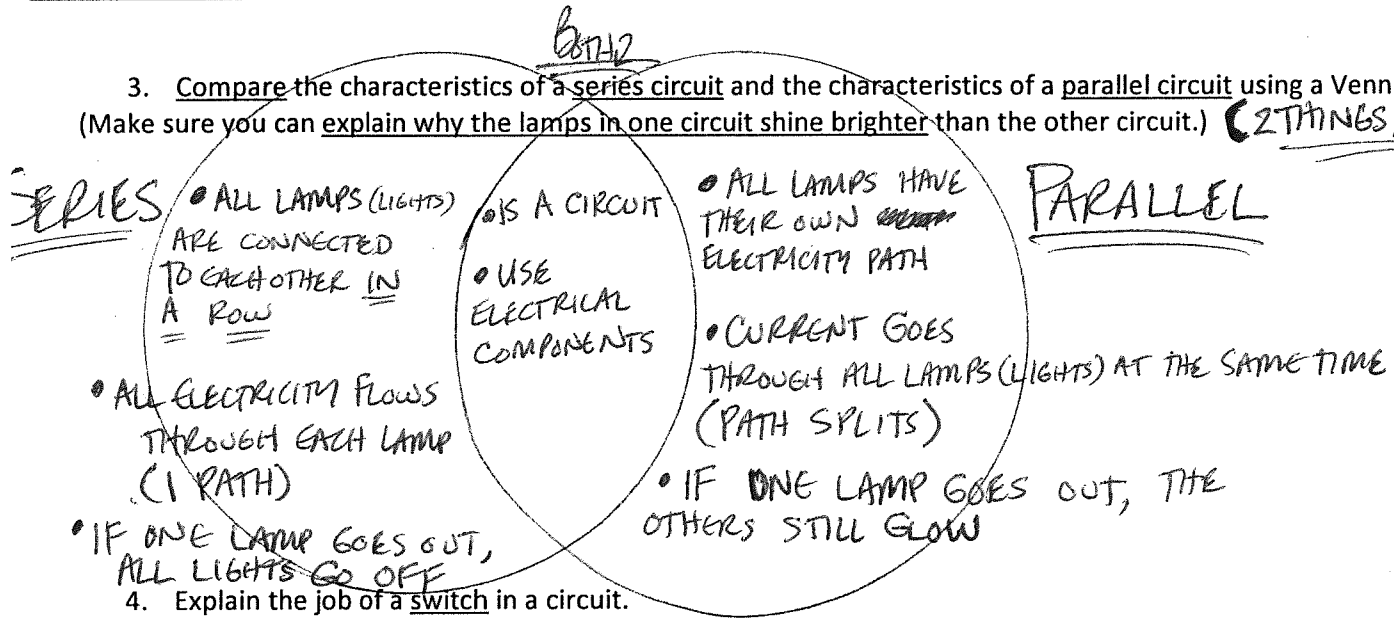 BOTH
3. Compare the characteristics of a series circuit and the characteristics of a parallel circuit using a Venn
(Make sure you can explain why the lamps in one circuit shine brighter than the other circuit.) (2 THINGS
SERIES
• ALL LAMPS (LIGHTS)
ARE CONNECTED
TO EACH OTHER IN
A ROW
• ALL ELECTRICITY FLOWS
THROUGH EACH LAMP
(1 PATH)
• IF ONE LAMP GOES OUT,
ALL LIGHTS GO OFF
• IS A CIRCUIT
• USE
ELECTRICAL
COMPONENTS
PARALLEL
• ALL LAMPS HAVE
THEIR OWN
ELECTRICITY PATH
• CURRENT GOES
THROUGH ALL LAMPS (LIGHTS) AT THE SAME TIME
(PATH SPLITS)
• IF ONE LAMP GOES OUT, THE
OTHERS STILL GLOW
4. Explain the job of a switch in a circuit.